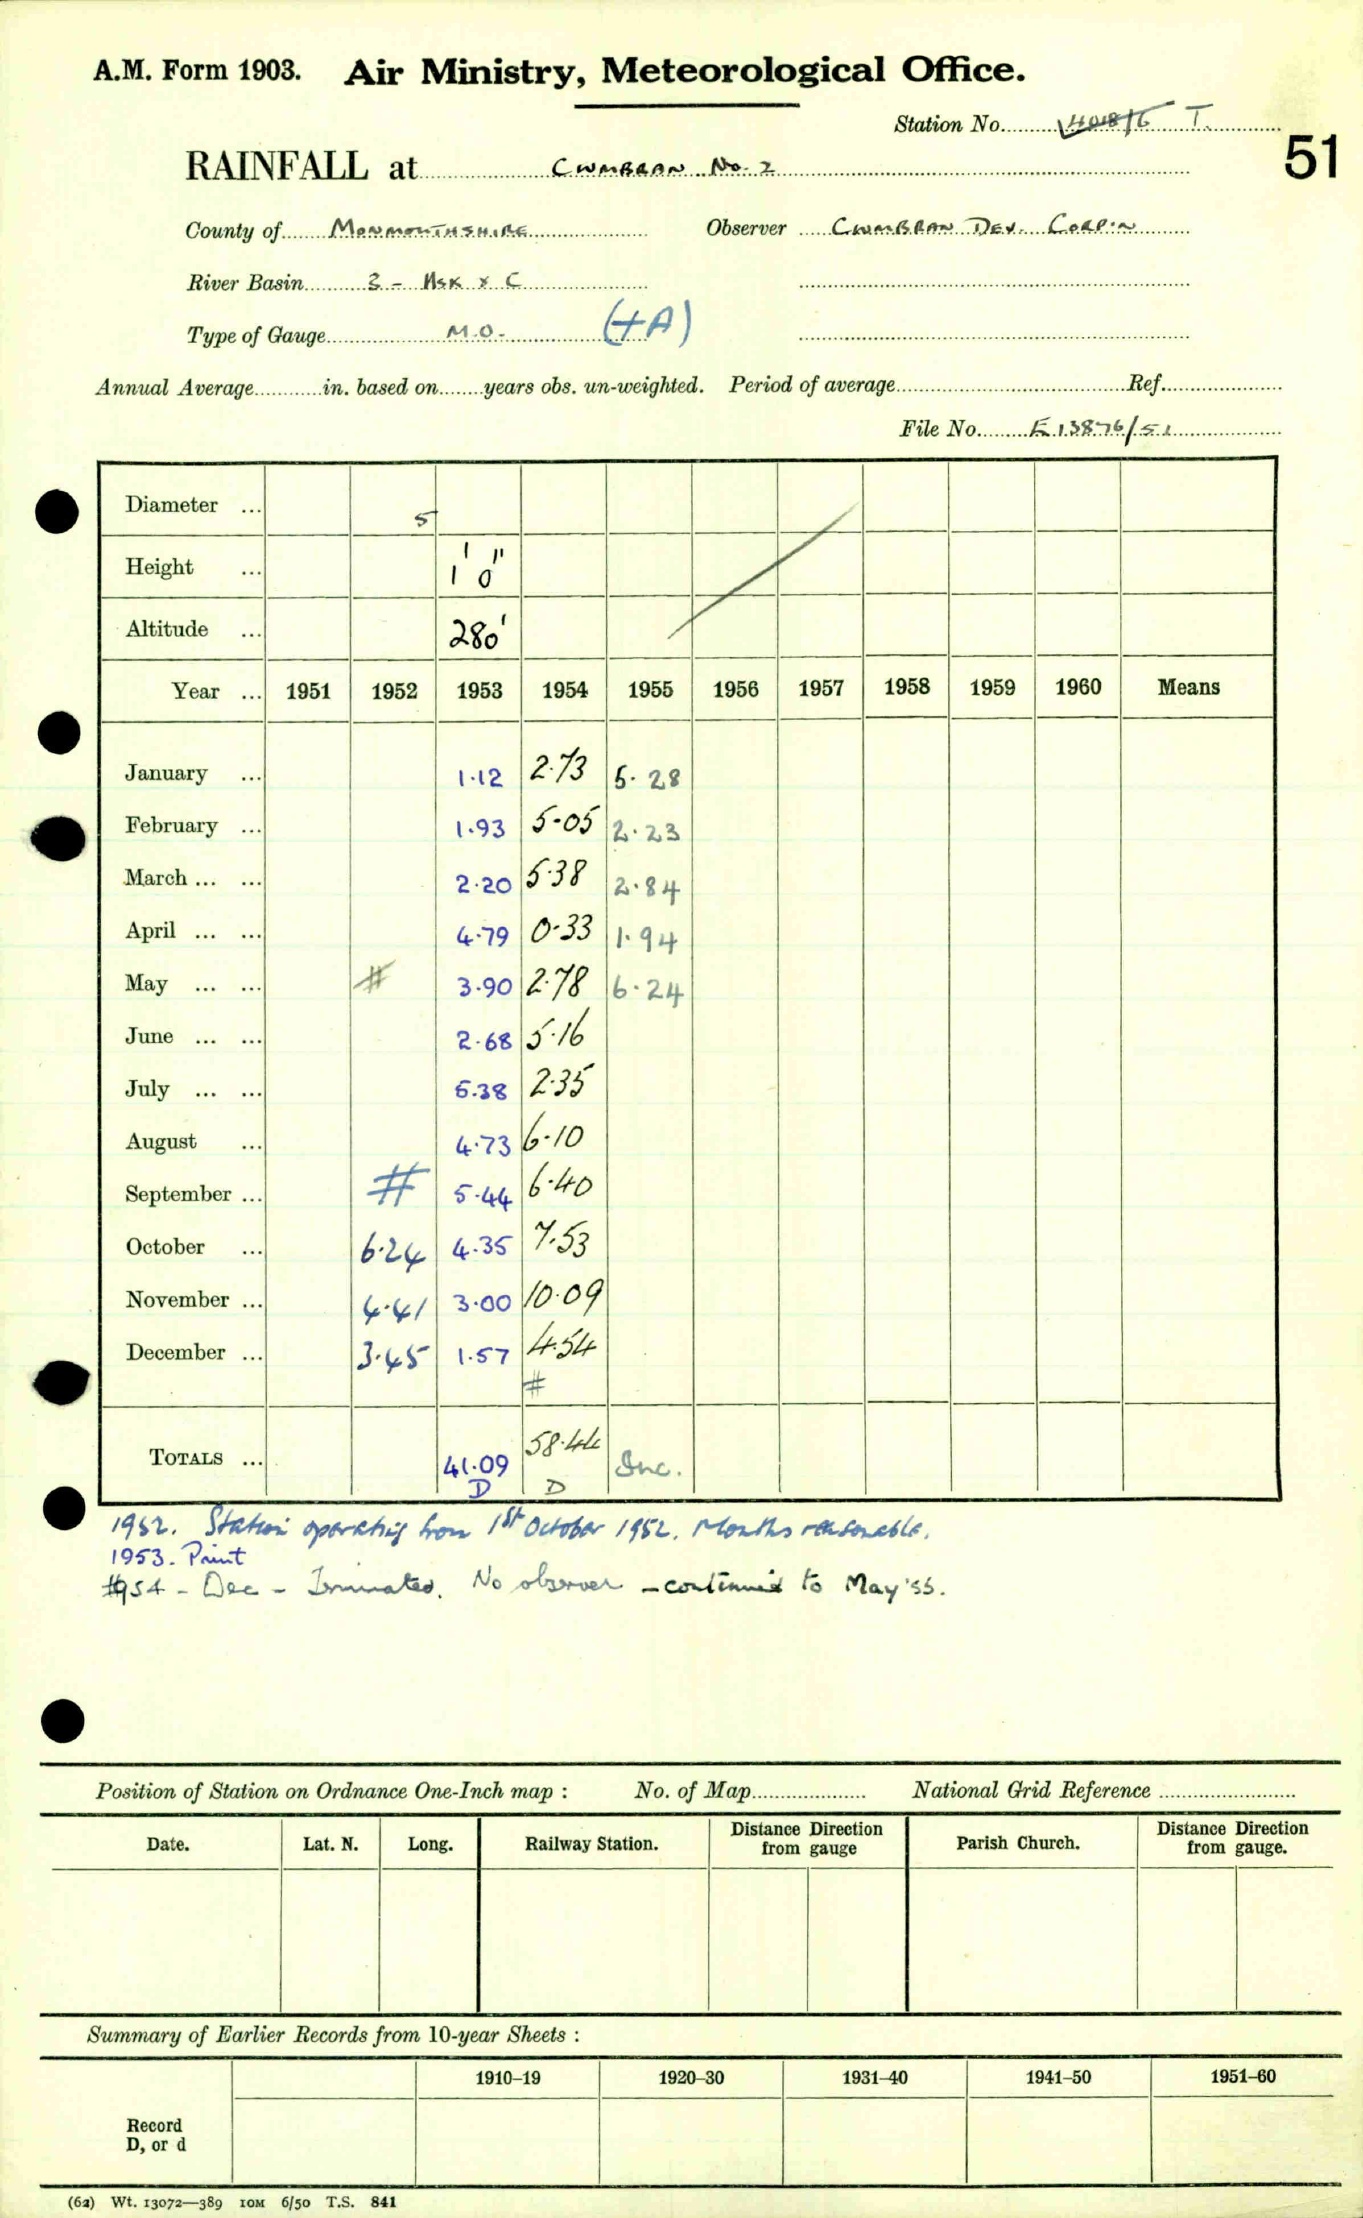 A.M. Form 1903. Air Ministry, Meteorological Office.
Station No. 4018/6 T.
51
RAINFALL at CWMBRAN No. 2
County of MONMOUTHSHIRE Observer CWMBRAN DEV. CORP'N
River Basin 3 - USK & C
Type of Gauge M.O. (+A)
Annual Average in. based on years obs. un-weighted. Period of average Ref.
File No. E13876/51
Diameter ... 5
Height ... 1' 0"
Altitude ... 280'
Year ... 1951 1952 1953 1954 1955 1956 1957 1958 1959 1960 Means
January ... 1.12 2.73 5.28
February ... 1.93 5.05 2.23
March ... ... 2.20 5.38 2.84
April ... ... 4.79 0.33 1.94
May ... ... # 3.90 2.78 6.24
June ... ... 2.68 5.16
July ... ... 5.38 2.35
August ... 4.73 6.10
September ... # 5.44 6.40
October ... 6.24 4.35 7.53
November ... 4.41 3.00 10.09
December ... 3.45 1.57 4.54
#
TOTALS ... 41.09 58.44 Inc.
D D
1952. Station operating from 1st October 1952. Months reasonable.
1953. Print
#1954 - Dec - Terminated. No observer - continued to May '55.
Position of Station on Ordnance One-Inch map : No. of Map National Grid Reference
Date. Lat. N. Long. Railway Station. Distance Direction from gauge Parish Church. Distance Direction from gauge.
Summary of Earlier Records from 10-year Sheets :
1910–19 1920–30 1931–40 1941–50 1951–60
Record
D, or d
(62) Wt. 13072—389 10M 6/50 T.S. 841